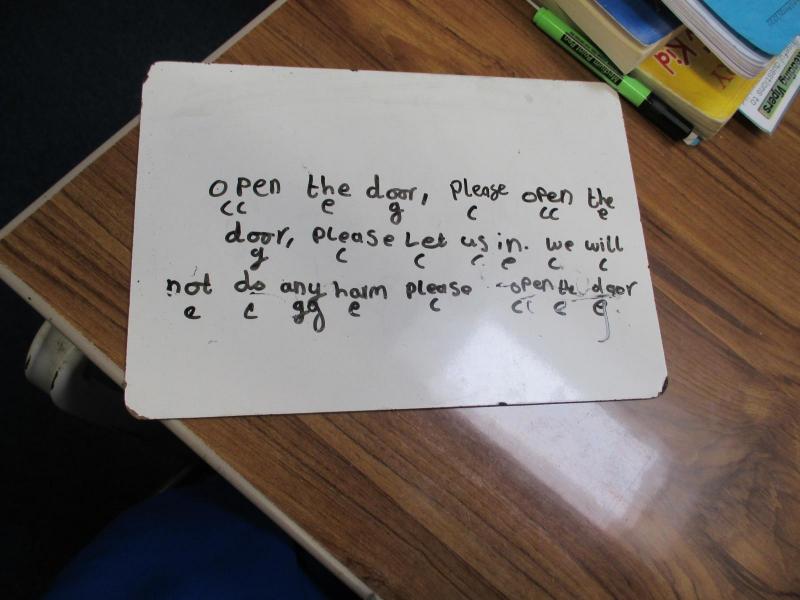 open the door, please open the
cc e g c cc e
door, please Let us in. we will
g c c c e c c
not do any harm please open the door
e c gg e c cc e g.
Kid
Vipers